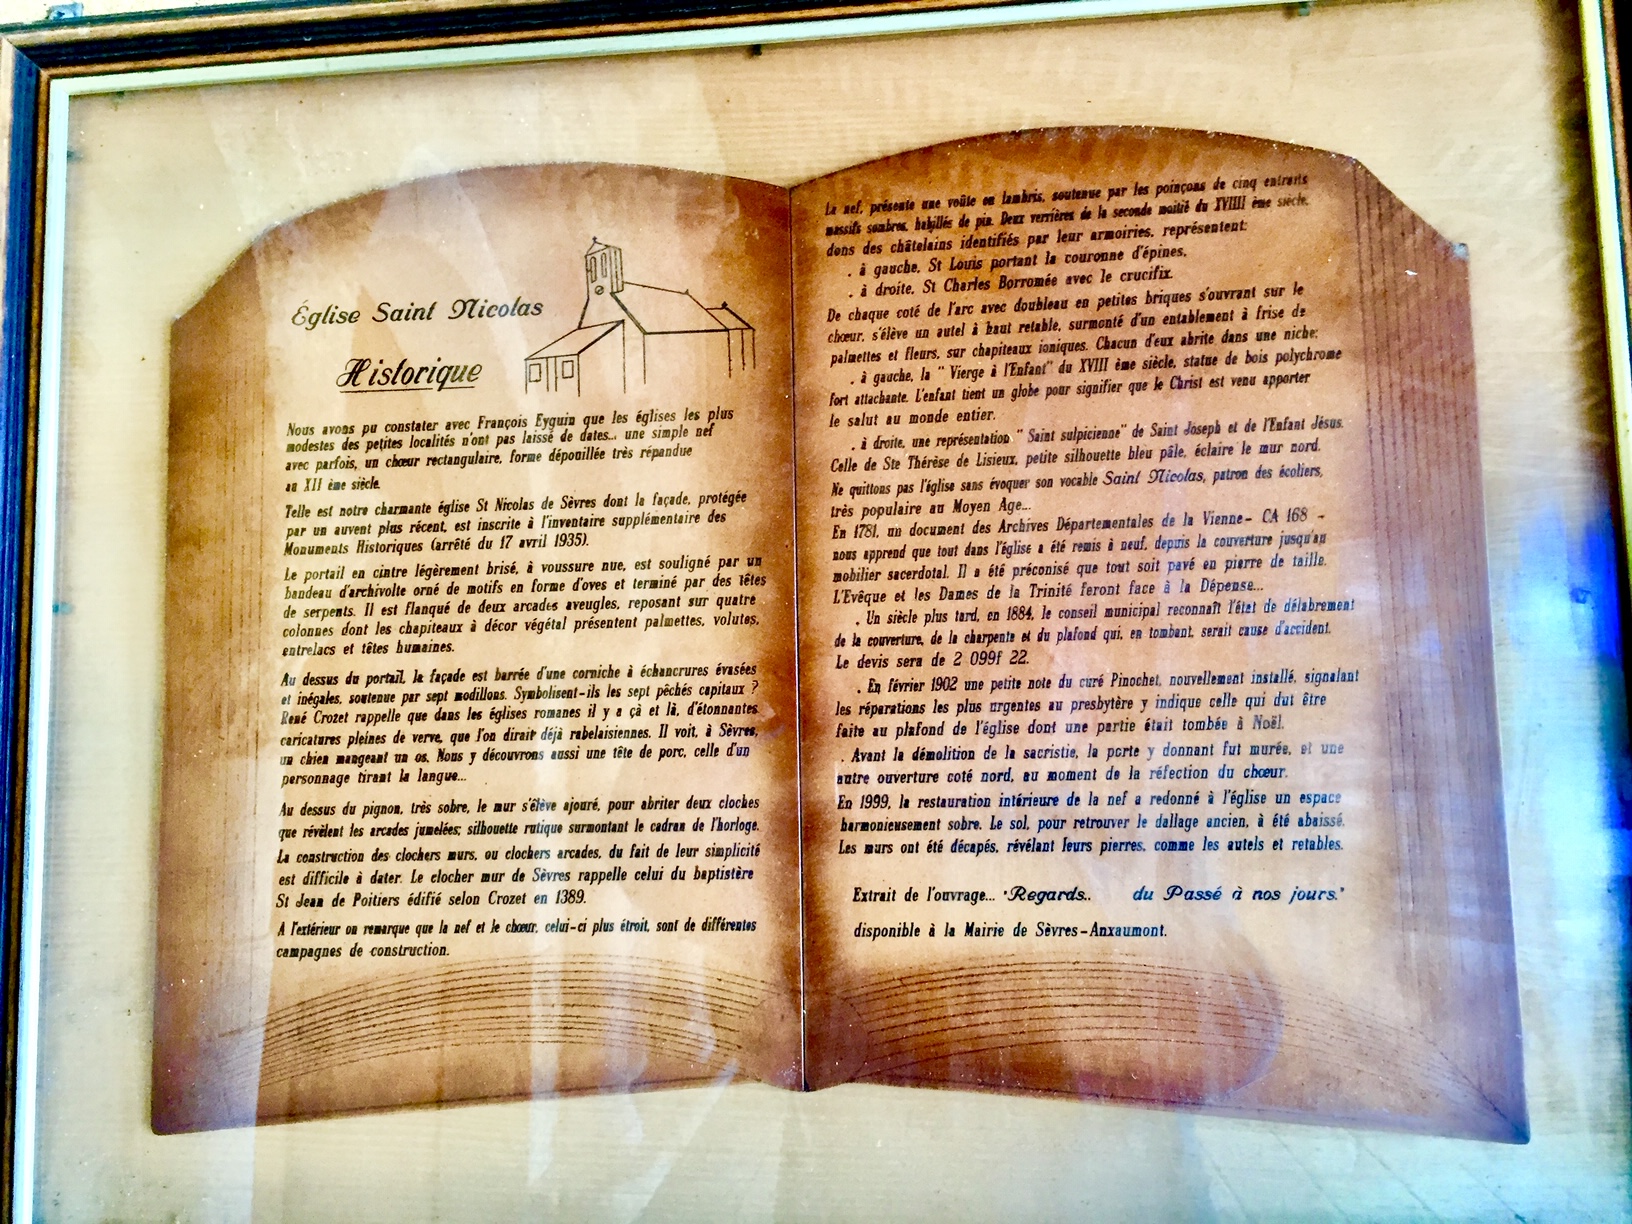 Église Saint Nicolas
Historique
Nous avons pu constater avec François Eyguin que les églises les plus
modestes des petites localités n'ont pas laissé de dates... une simple nef
avec parfois, un chœur rectangulaire, forme dépouillée très répandue
au XII ème siècle.
Telle est notre charmante église St Nicolas de Sèvres dont la façade, protégée
par un auvent plus récent, est inscrite à l'inventaire supplémentaire des
Monuments Historiques (arrêté du 17 avril 1935).
Le portail en cintre légèrement brisé, à voussure nue, est souligné par un
bandeau d'archivolte orné de motifs en forme d'oves et terminé par des têtes
de serpents. Il est flanqué de deux arcades aveugles, reposant sur quatre
colonnes dont les chapiteaux à décor végétal présentent palmettes, volutes,
entrelacs et têtes humaines.
Au dessus du portail, la façade est barrée d'une corniche à échancrures évasées
et inégales, soutenue par sept modillons. Symbolisent-ils les sept pêchés capitaux ?
René Crozet rappelle que dans les églises romanes il y a çà et là, d'étonnantes
caricatures pleines de verve, que l'on dirait déjà rabelaisiennes. Il voit, à Sèvres,
un chien mangeant un os. Nous y découvrons aussi une tête de porc, celle d'un
personnage tirant la langue...
Au dessus du pignon, très sobre, le mur s'élève ajouré, pour abriter deux cloches
que révèlent les arcades jumelées; silhouette rutique surmontant le cadran de l'horloge.
La construction des clochers murs, ou clochers arcades, du fait de leur simplicité
est difficile à dater. Le clocher mur de Sèvres rappelle celui du baptistère
St Jean de Poitiers édifié selon Crozet en 1389.
A l'extérieur on remarque que la nef et le chœur, celui-ci plus étroit, sont de différentes
campagnes de construction.
La nef, présente une voûte en lambris, soutenue par les poinçons de cinq entraits
massifs sombres, habillés de pin. Deux verrières de la seconde moitié du XVIIII ème siècle,
dons des châtelains identifiés par leur armoiries, représentent:
. à gauche, St Louis portant la couronne d'épines,
. à droite, St Charles Borromée avec le crucifix.
De chaque coté de l'arc avec doubleau en petites briques s'ouvrant sur le
chœur, s'élève un autel à haut retable, surmonté d'un entablement à frise de
palmettes et fleurs, sur chapiteaux ioniques. Chacun d'eux abrite dans une niche:
. à gauche, la " Vierge à l'Enfant" du XVIII ème siècle, statue de bois polychrome
fort attachante. L'enfant tient un globe pour signifier que le Christ est venu apporter
le salut au monde entier.
. à droite, une représentation " Saint sulpicienne" de Saint Joseph et de l'Enfant Jésus.
Celle de Ste Thérèse de Lisieux, petite silhouette bleu pâle, éclaire le mur nord.
Ne quittons pas l'église sans évoquer son vocable Saint Nicolas, patron des écoliers,
très populaire au Moyen Age...
En 1781, un document des Archives Départementales de la Vienne- CA 168 -
nous apprend que tout dans l'église a été remis à neuf, depuis la couverture jusqu'au
mobilier sacerdotal. Il a été préconisé que tout soit pavé en pierre de taille.
L'Evêque et les Dames de la Trinité feront face à la Dépense...
. Un siècle plus tard, en 1884, le conseil municipal reconnaît l'état de délabrement
de la couverture, de la charpente et du plafond qui, en tombant, serait cause d'accident.
Le devis sera de 2 099f 22.
. En février 1902 une petite note du curé Pinochet, nouvellement installé, signalant
les réparations les plus urgentes au presbytère y indique celle qui dut être
faite au plafond de l'église dont une partie était tombée à Noël.
. Avant la démolition de la sacristie, la porte y donnant fut murée, et une
autre ouverture coté nord, au moment de la réfection du chœur.
En 1999, la restauration intérieure de la nef a redonné à l'église un espace
harmonieusement sobre. Le sol, pour retrouver le dallage ancien, à été abaissé.
Les murs ont été décapés, révélant leurs pierres, comme les autels et retables.
Extrait de l'ouvrage... "Regards.. du Passé à nos jours."
disponible à la Mairie de Sèvres-Anxaumont.